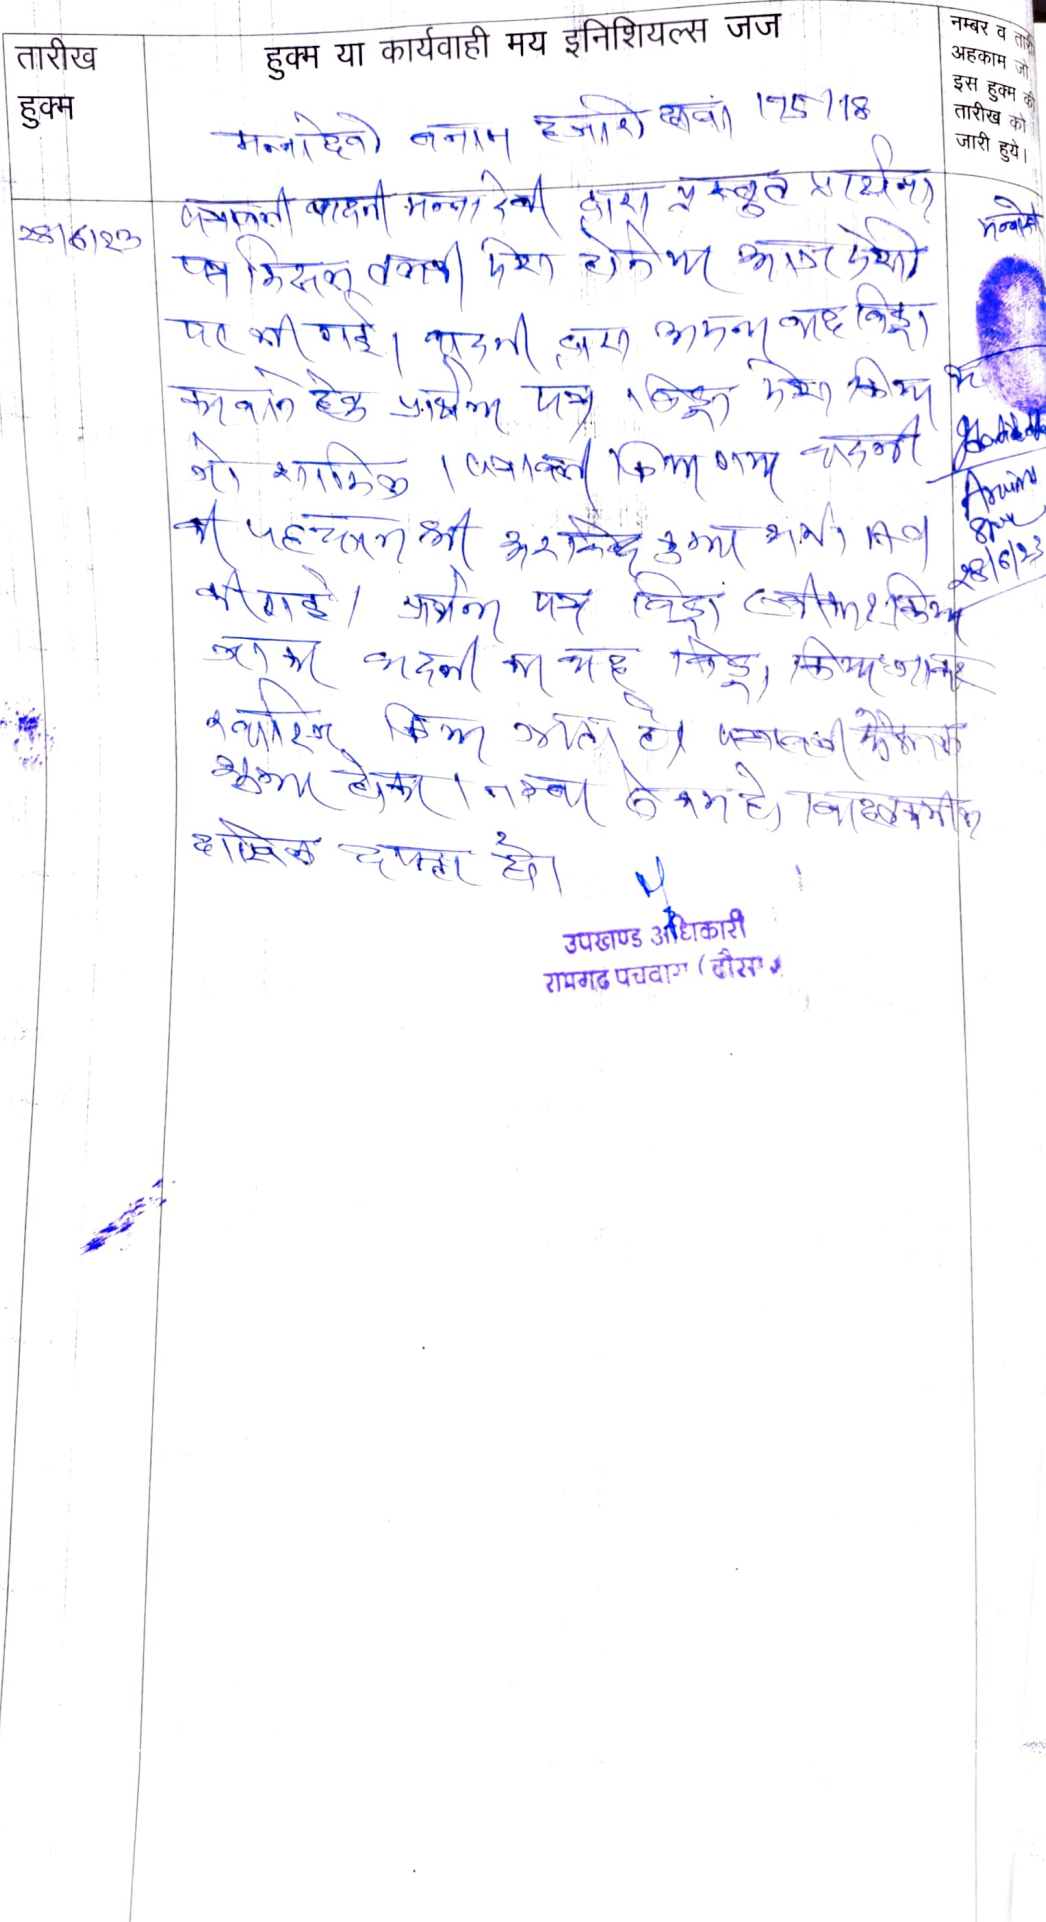 तारीख
हुक्म
हुक्म या कार्यवाही मय इनिशियल्स जज
नम्बर व
अहकाम जो
इस हुक्म की
तारीख को
जारी हुये।
मन्नादेवी बनाम हजारी दावा 175/18
28/6/23
पत्रावली वादनी मन्ना देवी द्वारा प्रस्तुत प्रार्थना
पत्र मिसल तलबी पेश होने पर आज पेशी
पर ली गई। वादनी द्वारा अपना वाद विड्रा
करवाने हेतु प्रार्थना पत्र विड्रा पेश किया
जो शामिल पत्रावली किया गया वादनी
की पहचान श्री अरविन्द कुमार शर्मा
की गई। प्रार्थना पत्र विड्रा स्वीकार किया
जाकर वादनी का वाद विड्रा किया जाकर
खारिज किया जाता है। पत्रावली फैसल
शुमार होकर नम्बर से कम हो। बाद तकमील
दाखिल दफ्तर हो।
उपखण्ड अधिकारी
रामगढ पचवारा (दौसा)
मन्नादेवी
28/6/23